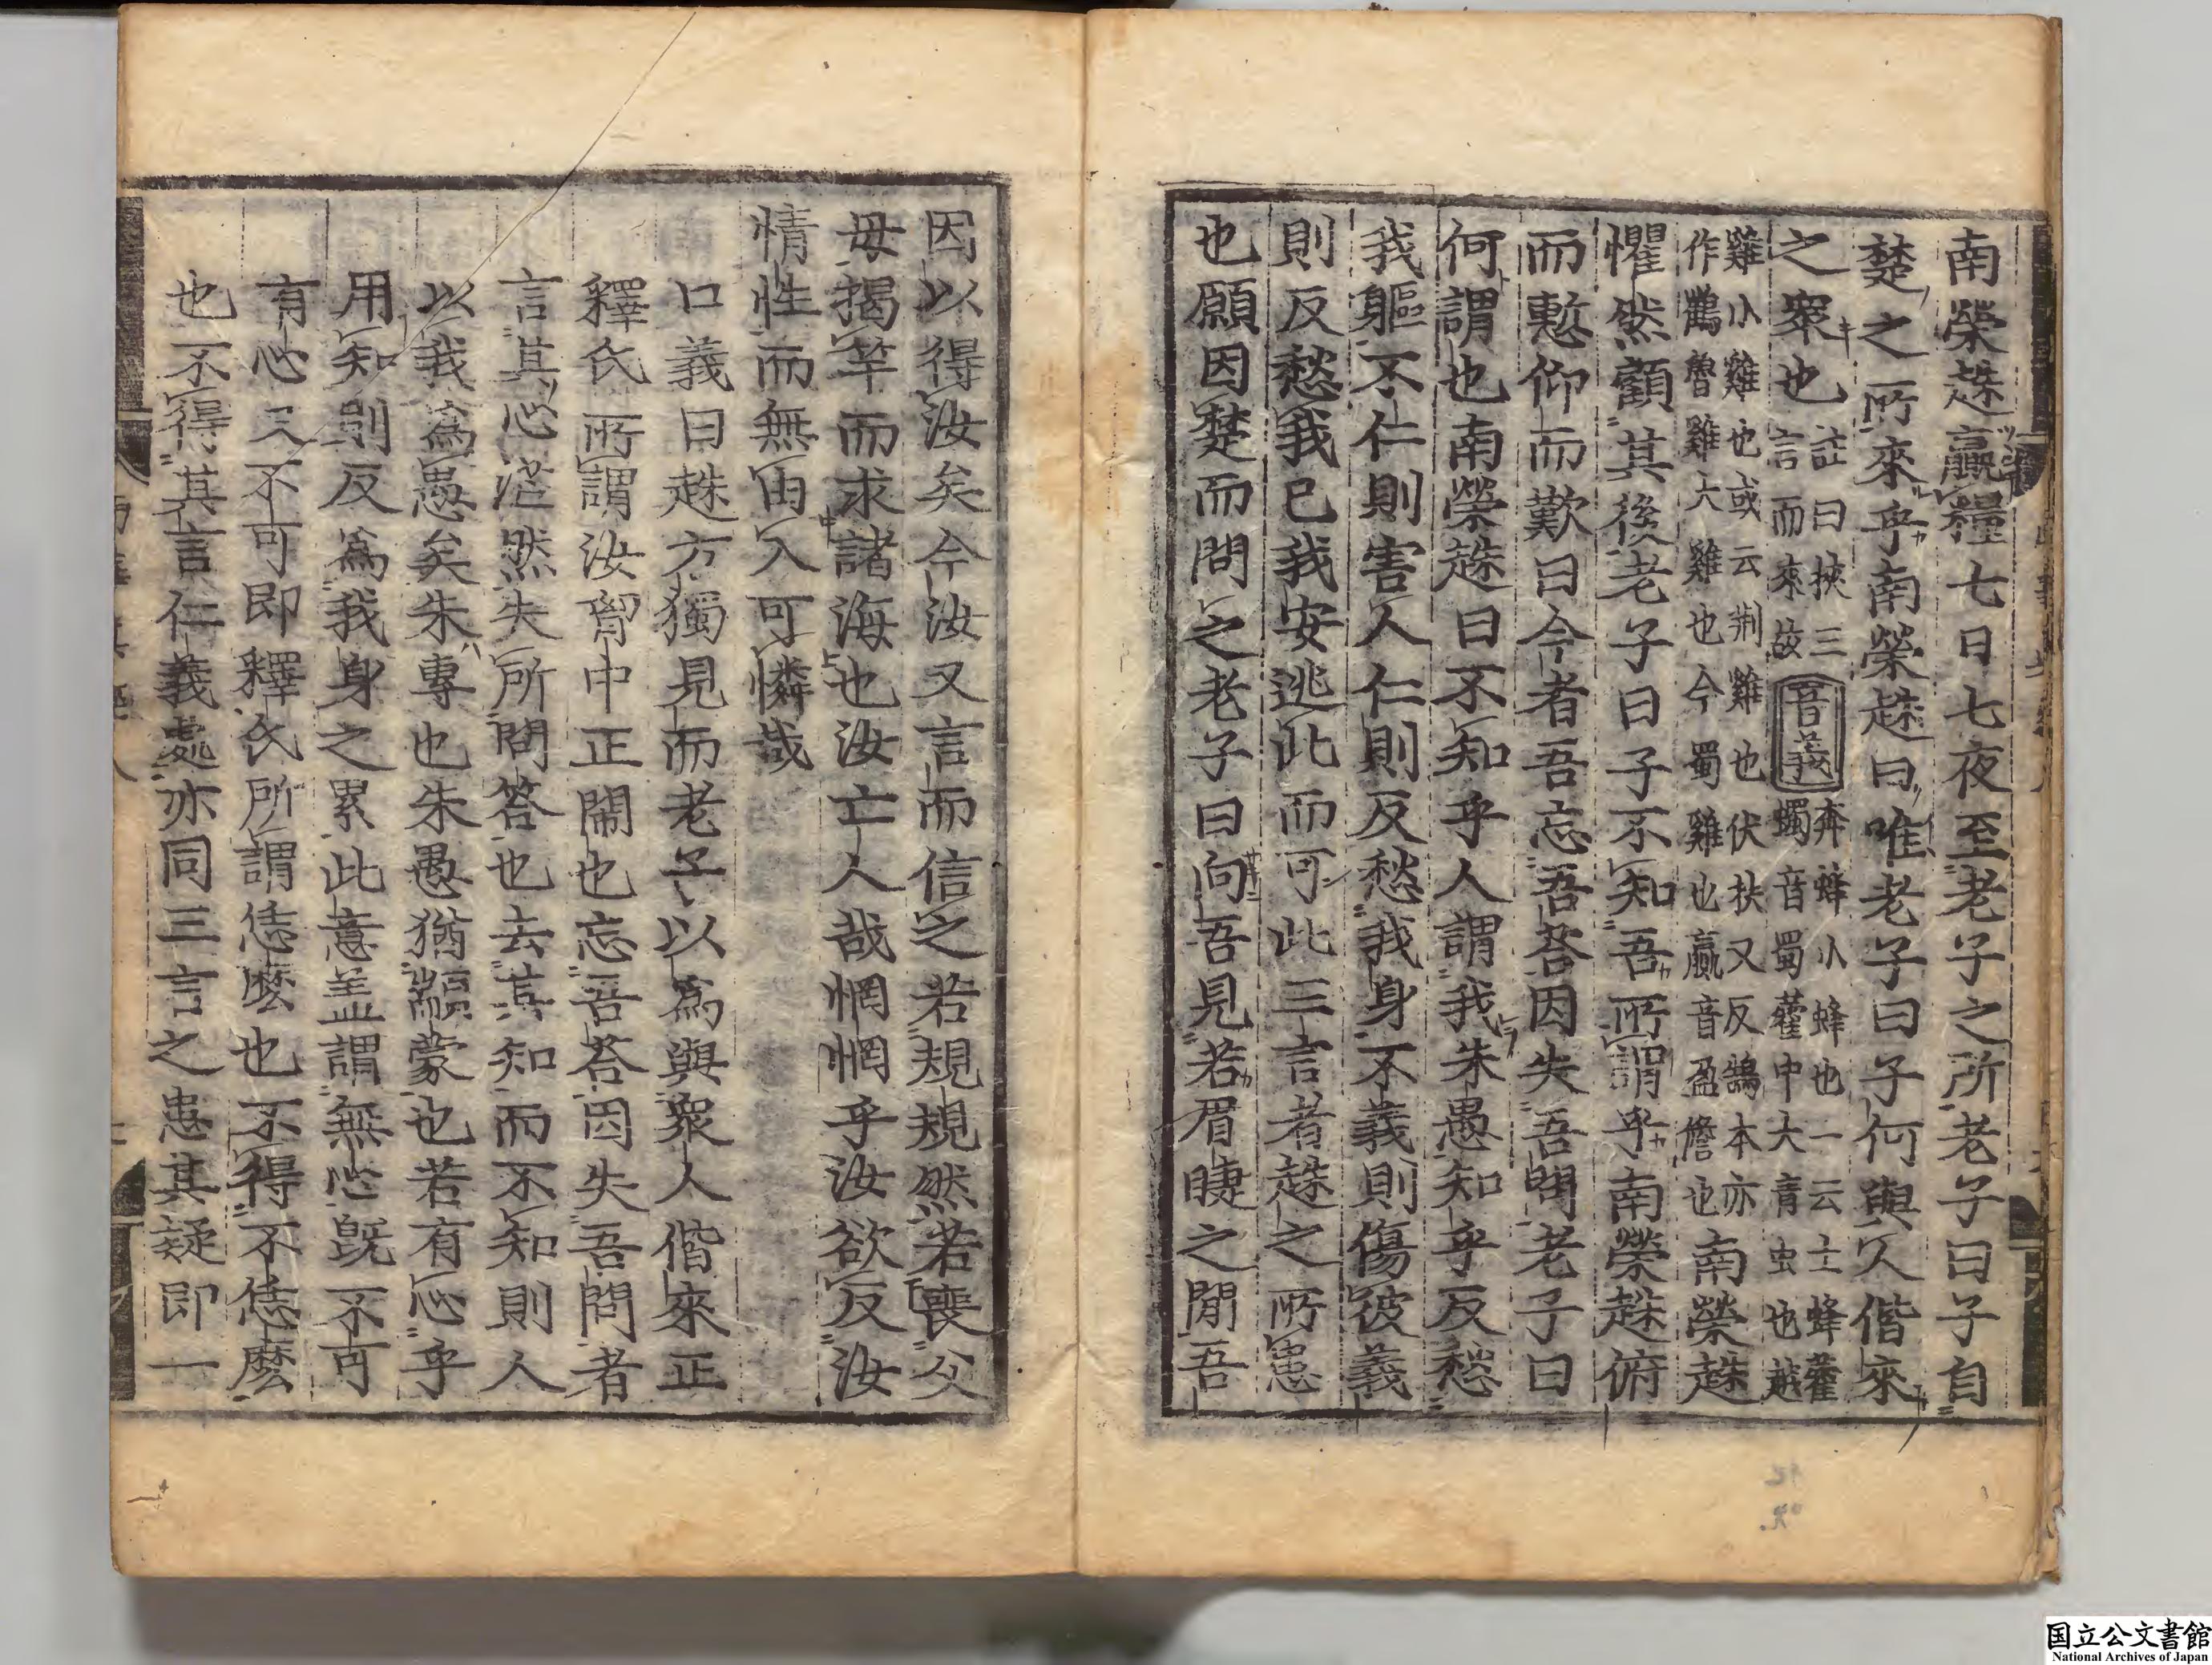 南榮趎贏糧七日七夜至老子之所老子曰子自
楚之所來乎南榮趎曰唯老子曰子何與人偕來
之衆也註曰挾三言而來故音義奔蜂小蜂也一云土蜂藿蠋音蜀藿中大青虫也越
雞小雞也或云荆雞也伏扶又反鵠本亦作鸖魯雞大雞也今蜀雞也贏音盈擔也南榮趎
懼然顧其後老子曰子不知吾所謂乎南榮趎俯
而慙仰而歎曰今者吾忘吾荅因失吾問老子曰
何謂也南榮趎曰不知乎人謂我朱愚知乎反愁
我軀不仁則害人仁則反愁我身不義則傷彼義
則反愁我已我安逃此而可此三言者趎之所患
也願因楚而問之老子曰向吾見若眉睫之間吾
因以得汝矣今汝又言而信之若規規然若喪父
母揭竿而求諸海也汝亡人哉惘惘乎汝欲反汝
情性而無由入可憐哉
口義曰趎方獨見而老子以爲與衆人偕來正
釋氏所謂汝胷中正鬧也忘吾荅因失吾問者
言其心茫然失所問答也去其知而不知則人
以我爲愚矣朱專也朱愚猶顓蒙也若有心乎
用知則反爲我身之累此意盖謂無心旣不可
有心又不可即釋氏所謂恁麽也不得不恁麽
也不得其言仁義處亦同三言之患其疑即一
国立公文書館
National Archives of Japan